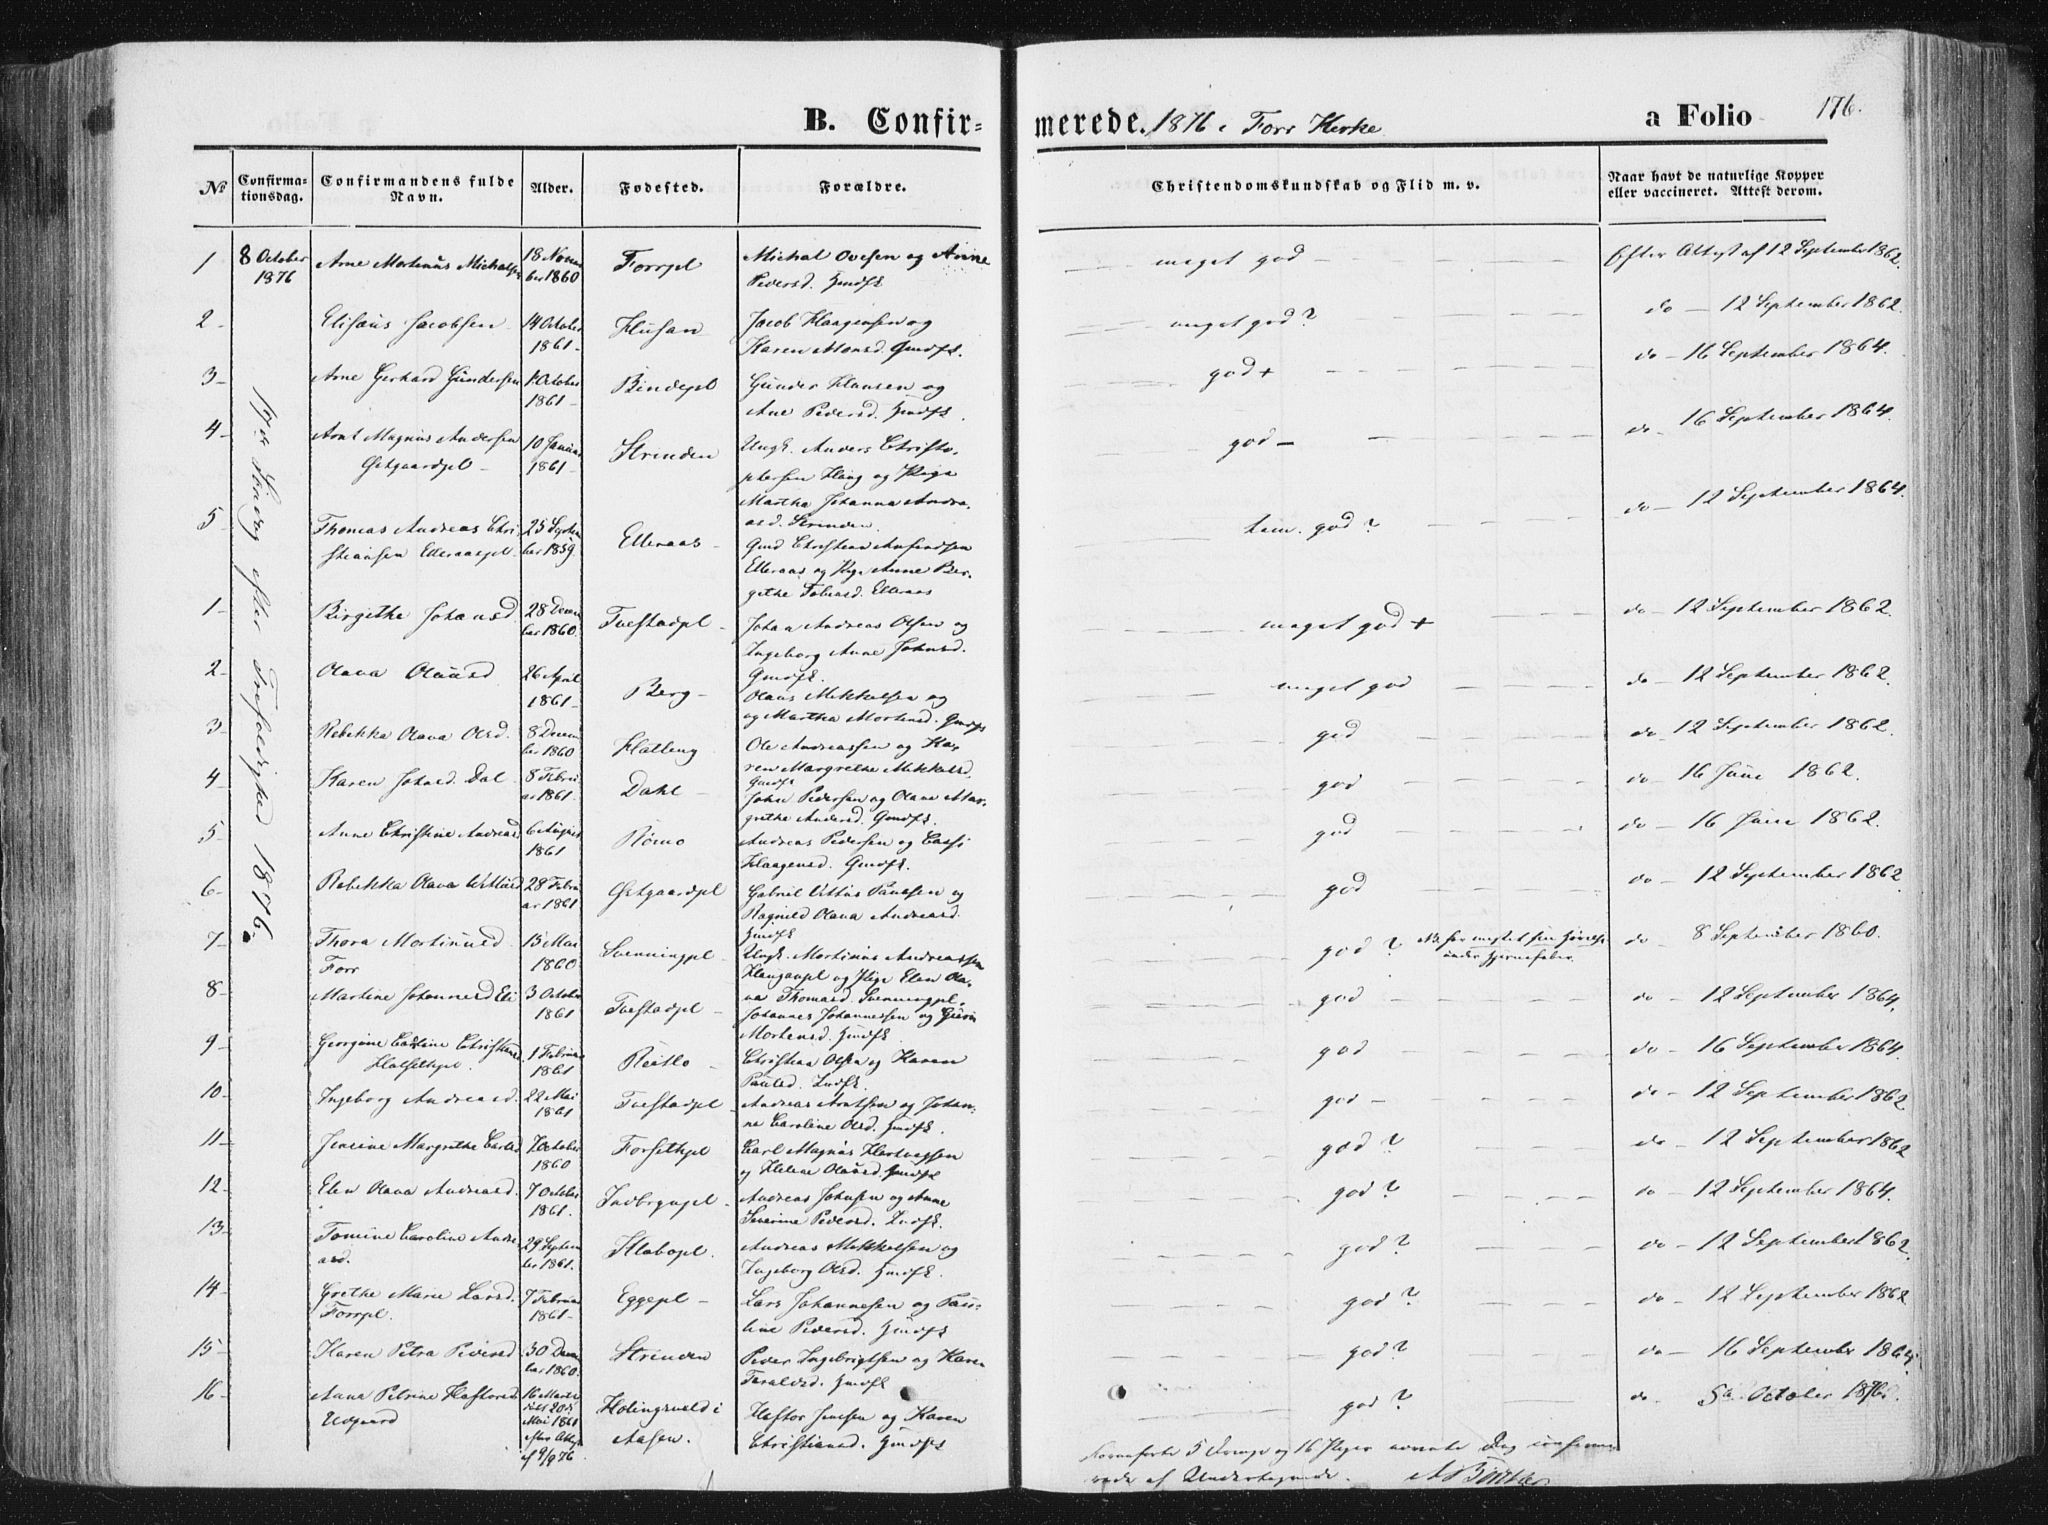 B. Confirmerede. 1876 i Forr Kirke
a Folio 176.
No Confirmationsdag. Confirmandens fulde Navn. Alder. Fødested. Forældre. Christendomskundskab og Flid m. v. Naar havt de naturlige Kopper eller vaccineret. Attest derom.
17de Søndag efter Trefoldighed 1876.
1 8 October 1876 Arne Mortinus Michalsen 18 November 1860 Forrpl Michal Ovesen og Anne Pedersd. Hmdfk meget god Efter Attest af 12 September 1862.
2 - Elisæus Jacobsen 14 October 1861 - Husan Jacob Haagensen og Karen Monsd. Gmdfk. meget god? do - 12 September 1862.
3 - Arne Gerhard Gundersen October 1861 - Bindepl Gunder Hansen og Ane Pedersd. Hmdfk. god + do - 16 September 1864.
4 - Arnt Magnus Andersen Østgaardpl - 10 Januar 1861 - Strinden Ungk. Anders Christophersen Haug og Pige Martha Johanna Andreasd. Strinden. god - do - 16 September 1864.
5 - Thomas Andreas Christiansen Elleraaspl - 25 September 1859 Elleraas - Gmd Christian Elleraas og Pige Anne Bergethe Tobiasd. Elleraas tem. god? do - 12 September 1864.
1 - Birgithe Johansd. 28 December 1860. Tuestadpl - Johan Andreas Olsen og Ingeborg Anne Johnsd. Gmdfk. meget god + do - 12 September 1862.
2 - Olava Olausd 26 April 1861 - Berg - Olaus Mikkelsen og og Martha Mortensd. Gmdfk meget god do - 12 September 1862.
3 - Rebekka Olava Olsd. 8 December 1860 Hallem Ole Andreassen og Karen Margrethe Mikkelsd. Gmdfk god do - 12 September 1862.
4 - Karen Johnsd. Dal - 8 Februar 1861. Dahl - John Pedersen og Olava Margrethe Andersd. Gmdfk. god do - 16 Juni 1862.
5 - Anne Christine Andreasd 6 August 1861 Rømo Andreas Pedersen og Haagensd. Gmdfk. god do - 16 Juni 1862.
6 - Rebekka Olava Vitusd 28 Februar 1861 Østgaardpl Gabriel Vitus Paulsen og Ragnild Olava Andreasd. Hmdfk god do - 12 September 1862
7 - Thora Mortinusd. Forr 15 Mai 1860 Svenningpl - Ungk. Mortinus Andreassen Haugaupl og Pige Elen Olava Thomasd. Svenningpl. god? NB. har mistet sin Hørelse under Hjernefeber do - 8 September 1860.
8 - Martine Johannesd Eli 3 October 1861 Tuestadpl - Johannes Johannessen og Mortensd. Hmdfk god do - 12 September 1864.
9 - Georgine Christiansd Halselhpl. 1 Februar 1861 - Christian Olsen og Karen Paulsd. Indfk. god do - 16 September 1864.
10 - Ingeborg Andreasd. 22 Mai 1861 Tuestadpl - Andreas Arntsen og Johanne Caroline Olsd. Hmdfk. god - do - 12 September 1862
11 - Jensine Margrethe Carlsd 7 October 1860 Forsethpl Carl Magnus Hartvigsen og Helene Olausd. Hmdfk god? do - 12 September 1862
12 - Elen Olava Andreasd. 7 October 1861. Indbrynpl - Andreas Johnsen og Anne Severine Pedersd. Indfk. god? do - 12 September 1864.
13 - Tomine Caroline Andreasd. 29 September 1861. Stabopl. Andreas Mikkelsen og Ingeborg Olsd. Hmdfk. god? do - 12 September 1862.
14 - Grethe Marie Larsd. Forrpl. 7 Februar 1861 - Eggepl - Lars Johannesen og Pauline Pedersd. Hmdfk god? do - 12 September 1862
15 - Karen Petra Pedersd 30 December 1860. Strinden Peder Ingebrigtsen og Karen Toraldsd. Hmdfk god? do - 16 September 1864.
16 - Anna Petrine Haftorsd Udgaard 16 Marts 1861 efter Attest af 9/9 76 Holingsvald i Aasen. Haftor Jensen og Karen Christiansd. Hmdfk god? do 5te October 1876.
Foranførte 5 Drenge og 16 Piger nævnte Dag confirmerede af Undertegnede.